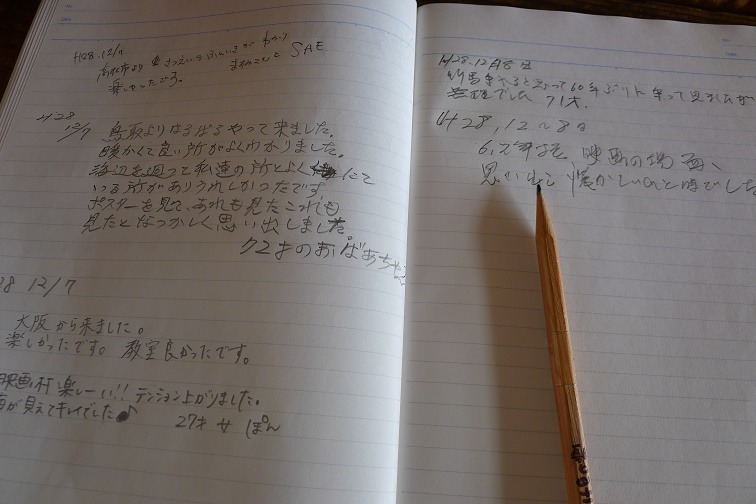 H28.12/7
高松市より
楽しかったでス。
SAE
H28
12/7
鳥取よりはるばるやって来ました。
暖かくて良い所がよくわかりました。
海辺を廻って私達の所とよく にて
いる所がありうれしかったです。
ポスターを見て、あれも見たこれも
見たとなつかしく思い出しました。
72才のおばあちゃ
28 12/7
大阪から来ました。
楽しかったです。 教室良かったです。
映画村 楽しーい!! テンション上がりました。
海が見えてキレイでした♪
27才 女 ぽん
H28.12月8日
竹馬 60年ぶりに乗って見ましたが
無理でした 71才.
H28,12~8日
映画の場面、
思い出し 懐かしいひと時でした